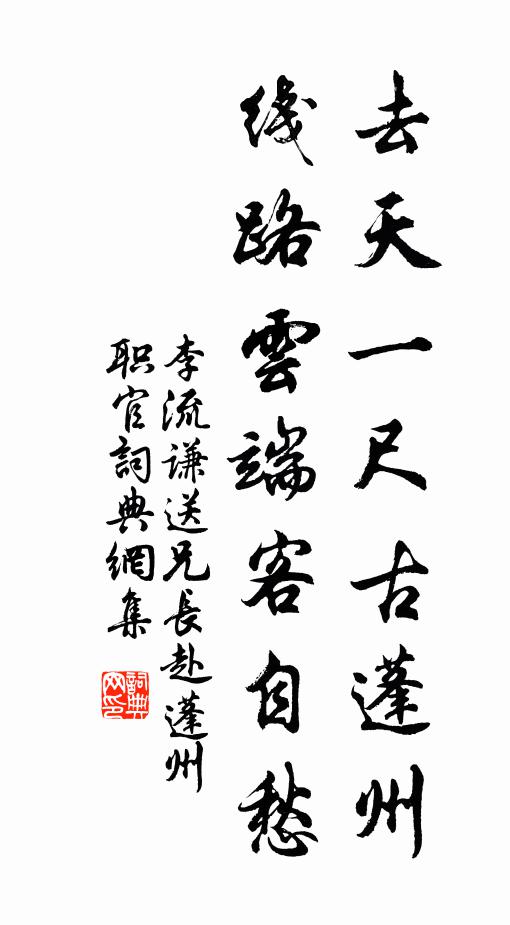 去天一尺古蓬州
线路雲端客自愁
李流谦送兄長赴蓬州
职官詞典網集
詞典网印